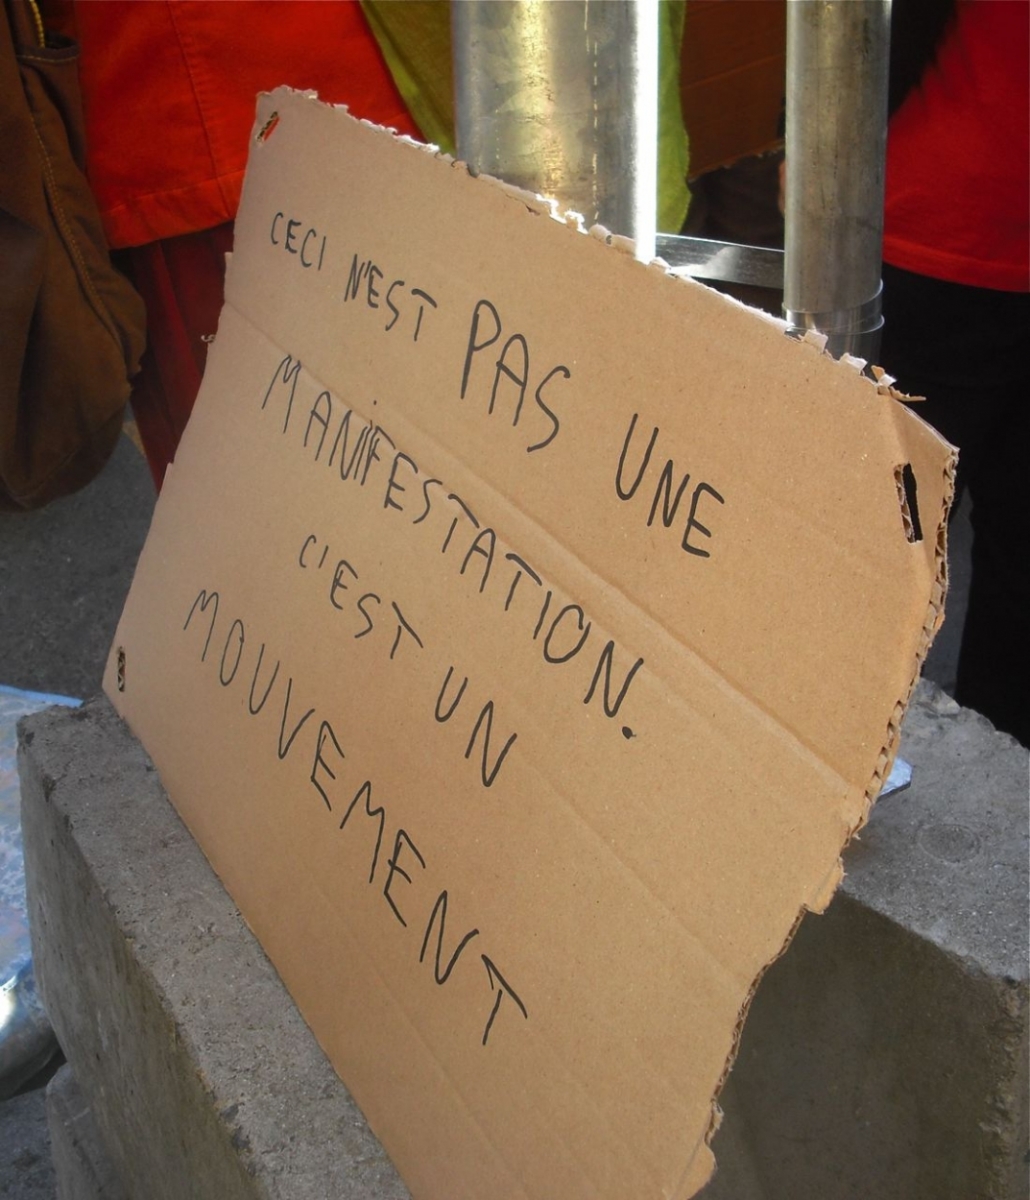 CECI N'EST PAS UNE
MANiFESTATION.
C'EST UN
MOUVEMENT